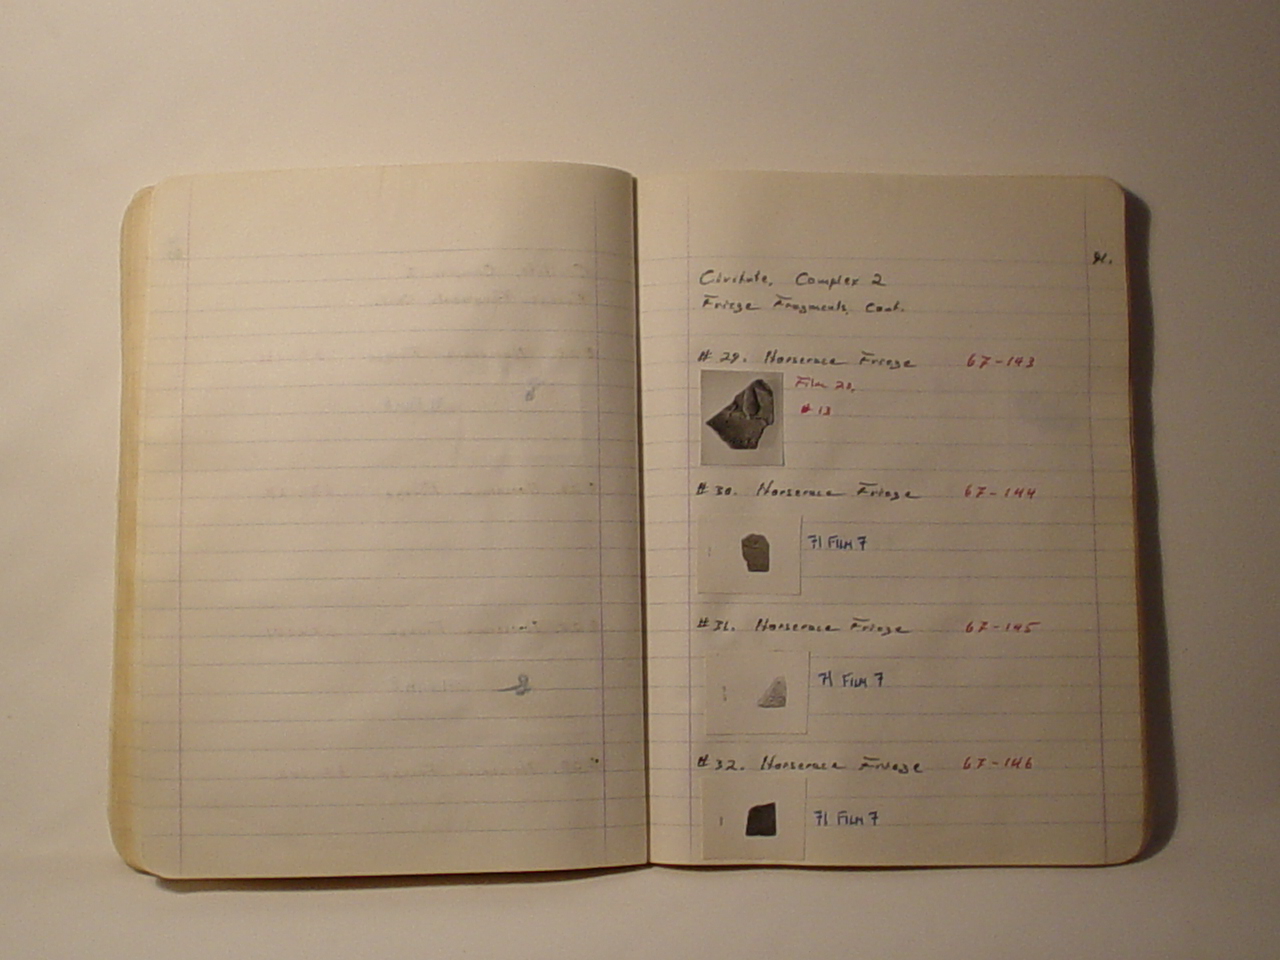 91.
Civitate, Complex 2
Frieze Fragments, Cont.
#29. Horserace Frieze 67-143
Film 20,
#13
#30. Horserace Frieze 67-144
71 FILM 7
#31. Horserace Frieze 67-145
71 FILM 7
#32. Horserace Frieze 67-146
71 FILM 7